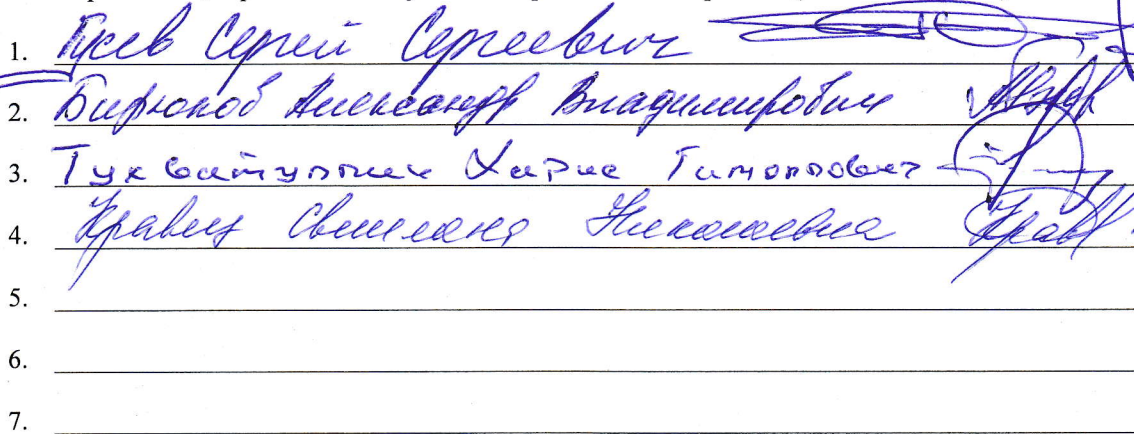 1. Гусев Сергей Сергеевич
2. Бирюков Александр Владимирович
3. Тухватуллин Харис
4. Кравец Светлана Николаевна
5.
6.
7.